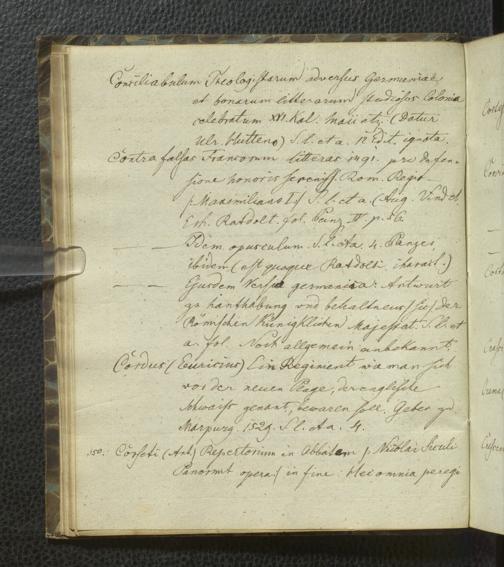 Conciliabulum Theologistarum adversus Germaniae,
et bonarum litterarum studiosos Colonia
celebratum XVI. Kal. Maii etz. (Datur
Ulr. Hutteno) S. l. et a. 12 Edit. ignota.
Contra falsas Francorum litteras 1491. pro defen-
sione honoris sereniss. Rom. Regis
(Maximiliano I) S. l. et a. (Aug. Vindel.
Erh. Ratdolt. fol. Panz. IV. p. 56
— — Idem opusculum. S. l. et a. 4. Panzer
ibidem (est quoque Ratdolti charact.)
— — Ejusdem versio germanica: Antwurt
zu hanthabung und behaltneus (sic) der
Römschen Kunigklichen Majestat. S. l. et
a. fol. Noch allgemein unbekannt.
Cordus (Euricius) Ein Regiment wie man sich
vor der neuen Plage, der englische
schwaiss genant, bewaren soll. Geben zu
Marpurg. 1529. S. l. et a. 4.
150. Corseti (Ant) Repertorium in Abbatem f. Nicolai Siculi
Panormt opera) in fine: Hec omnia peregi